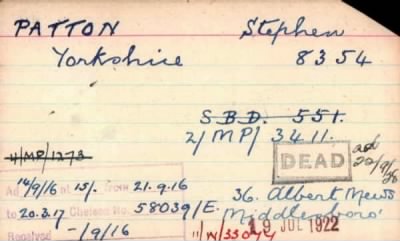 PATTON Stephen
Yorkshire 8354
S.B.D. 551.
2/MP/3411.
4/MP/1273
DEAD
Ad 14/9/16 at 15/. from 21.9.16
to 20.3.17 Chelsea No. 58039/E.
Received -/9/16
36. Albert Mews
Middlesboro'
19 JUL 1922